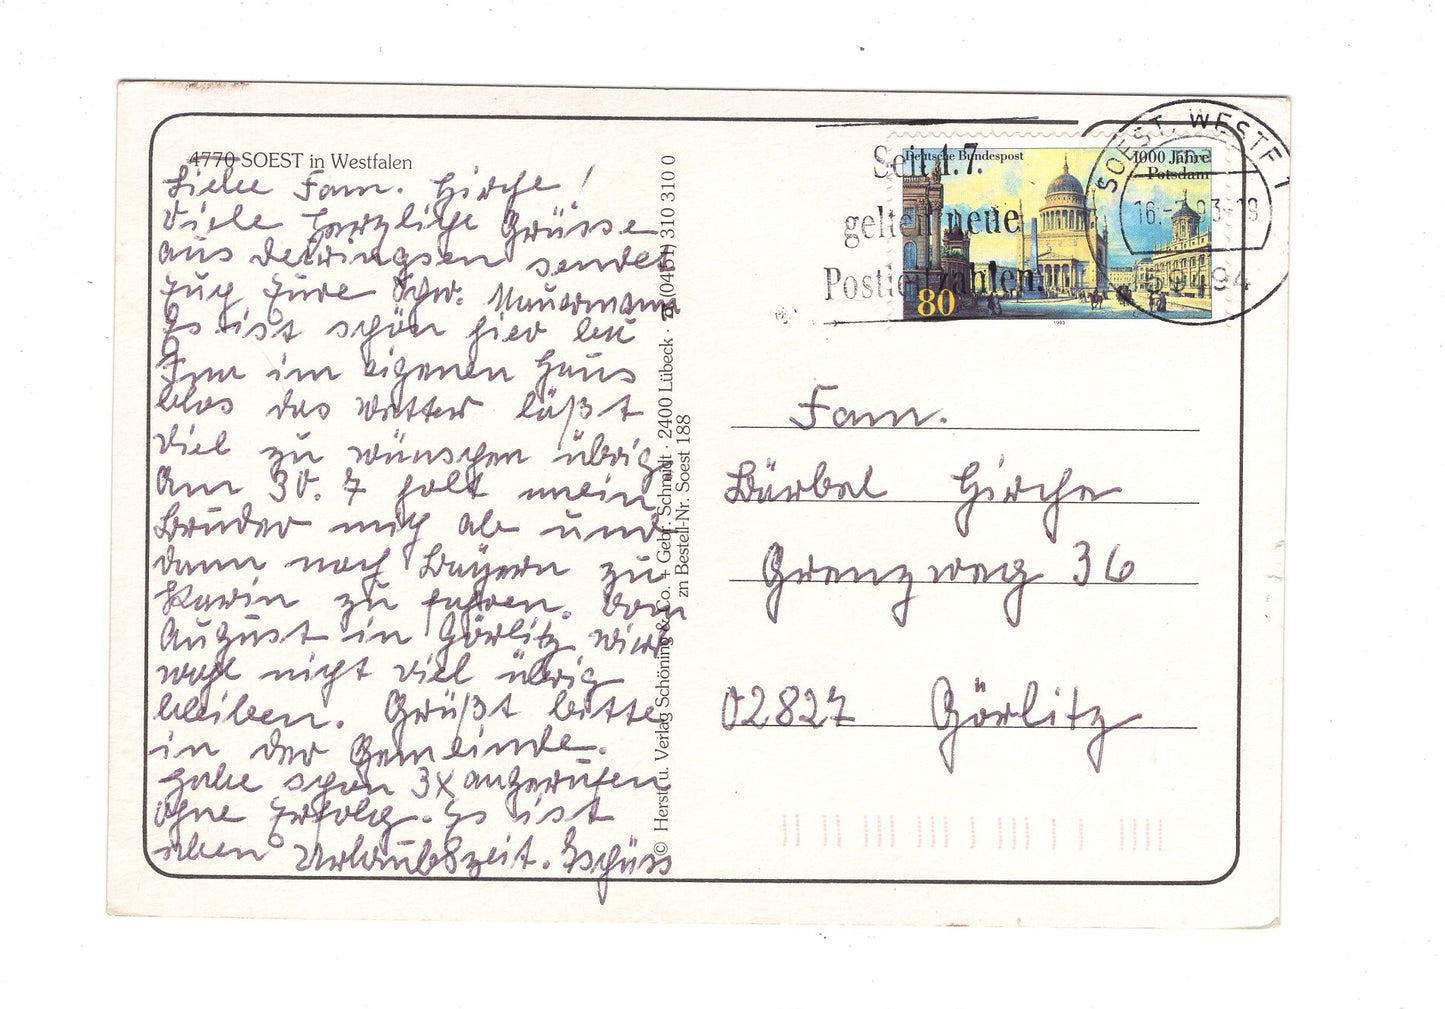 4770 SOEST in Westfalen
Liebe Fam. Hirche!
Viele herzliche Grüsse
aus Deiringsen sendet
Euch Eure Schw. Mauermann
Es ist schön hier bei
Inn im eigenen Haus
blos das Wetter läßt
viel zu wünschen übrig
Am 30. 7 holt mein
Bruder mich ab und
dann nach Bayern zu
Karin zu fahren. Vom
August in Görlitz wird
wohl nicht viel übrig
bleiben. Grüßt bitte
in der Gemeinde.
Habe schon 3x angerufen
ohne Erfolg. Es ist
eben Urlaubszeit. Tschüss
© Herst. u. Verlag Schöning & Co. + Gebr. Schmidt · 2400 Lübeck · ☎ (0451) 310 310 0
zn Bestell-Nr. Soest 188
Seit 1.7.
gelten neue
Postleitzahlen.
Deutsche Bundespost
1000 Jahre
Potsdam
80
1993
SOEST, WESTF 1
16.-7.93-19
59494
Fam.
Bärbel Hirche
Grenzweg 36
02827 Görlitz